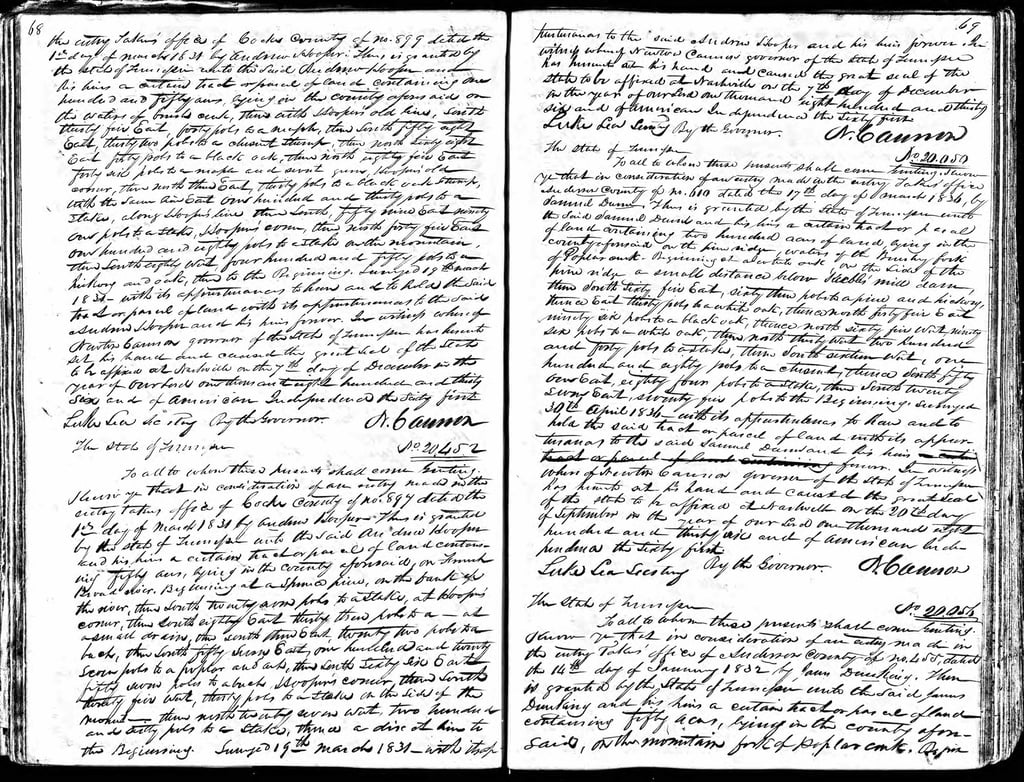 68
the entry Takers office of Cocke County of no. 899 dated the
1st day of march 1831 by Andrew Hooper. There is granted by
the state of Tennessee unto the said Andrew Hooper and
his heirs a certain tract or parcel of land containing one
hundred and fifty acres, lying in the county aforesaid on
the waters of creek, thence with Hoopers old line, South
thirty five East, forty poles to a maple, then South fifty eight
East, thirty two poles to a chesnut stump, then North sixty eight
East forty poles to a black oak, then north eighty five East
forty six poles to a maple and sweet gum, Hoopers old
corner, then north three East, thirty poles to a black oak stump,
with the same East one hundred and thirty poles to a
stake, along Hoopers line then South, fifty nine East ninety
one poles to a stake, Hoopers corner, then north forty five East
one hundred and eighty poles to a stake on the mountain,
then South eighty West four hundred and fifty poles to a
hickory and oak, then to the Beginning. Surveyed 19th march
1831 with its appurtenances to have and to hold the said
tract or parcel of land with its appurtenances to the said
Andrew Hooper and his heirs forever. In witness whereof
Newton Cannon governor of the State of Tennessee has hereunto
set his hand and caused the great Seal of the State
to be affixed at Nashville on the 7th day of December in the
year of our Lord one thousand eight hundred and thirty
six and of American Independence the Sixty first
Luke Lea Secretry By the Governor. N. Cannon
The State of Tennessee No 20,452
To all to whom these presents shall come Greeting.
Know ye that in consideration of an entry made in the
entry takers office of Cocke County of no. 897 dated the
1st day of March 1831 by Andrew Hooper There is granted
by the State of Tennessee unto the said Andrew Hooper
and his heirs a certain tract or parcel of land contain-
ing fifty acres, lying in the county aforesaid, on French
Broad river. Beginning at a Spruce pine, on the bank of
the river, then South twenty seven poles to a stake, at Hoopers
corner, then South eighty East thirty three poles to a — at
a small drain, then South three East, twenty two poles to a
beech, then South fifty seven East, one hundred and twenty
seven poles to a poplar and ash, then South Sixty Six East
fifty seven poles to a beech, Hoopers corner, then South
thirty five West, thirty poles to a stake on the side of the
mount— then north twenty seven West, two hundred
and sixty poles to a stake, thence a direct line to
the Beginning. Surveyed 19th March 1831 — with its ap
69
purtenances to the said Andrew Hooper and his heirs forever. In
witness whereof Newton Cannon governor of the State of Tennessee
has hereunto set his hand and caused the great seal of the
state to be affixed at Nashville on the 7th day of December
in the year of our Lord one thousand eight hundred and thirty
six and of American Independence the Sixty first
Luke Lea Secry By the Governor. N. Cannon
The State of Tennessee No 20,050
To all to whom these presents shall come Greeting. Know
ye that in consideration of an entry made in the entry Takers office
Anderson County of no. 610 dated the 17th day of March 1836, by
Samuel There is granted by the State of Tennessee unto
the said Samuel and his heirs a certain tract or parcel
of land containing two hundred acres of land, lying in the
county aforesaid on the pine ridge waters of the Brushy fork
of Poplar creek. Beginning at a white oak on the side of the
pine ridge a small distance below mill dam,
then South sixty five East, sixty three poles to a pine and hickory,
thence East thirty poles to a white oak, thence north forty five East
ninety six poles to a black oak; thence north sixty five West ninety
six poles to a white oak, then north thirty West two hundred
and forty poles to a stake, then South sixteen West, one
hundred and eighty poles to a chesnut, thence South fifty
one East, eighty four poles to a stake, then South twenty
seven East, seventy five poles to the Beginning. Surveyed
30th April 1836 with its appurtenances to have and to
hold the said tract or parcel of land with its appur-
tenances to the said Samuel and his heirs
forever. In witness
whereof Newton Cannon governor of the State of Tennessee
has hereunto set his hand and caused the great Seal
of the State to be affixed at Nashville on the 20th day
of September in the year of our Lord one thousand eight
hundred and thirty six and of American Inde-
pendence the Sixty first
Luke Lea Secretry By the Governor. N. Cannon
The State of Tennessee No 20,056
To all to whom these presents shall come Greeting.
Know ye that in consideration of an entry made in
the entry Takers office of Anderson County of no. 455, dated
the 14th day of January 1832 by James There
is granted by the State of Tennessee unto the said James
and his heirs a certain tract or parcel of land
containing fifty acres, lying in the county afore-
said, on the mountain fork of Poplar creek. Begin